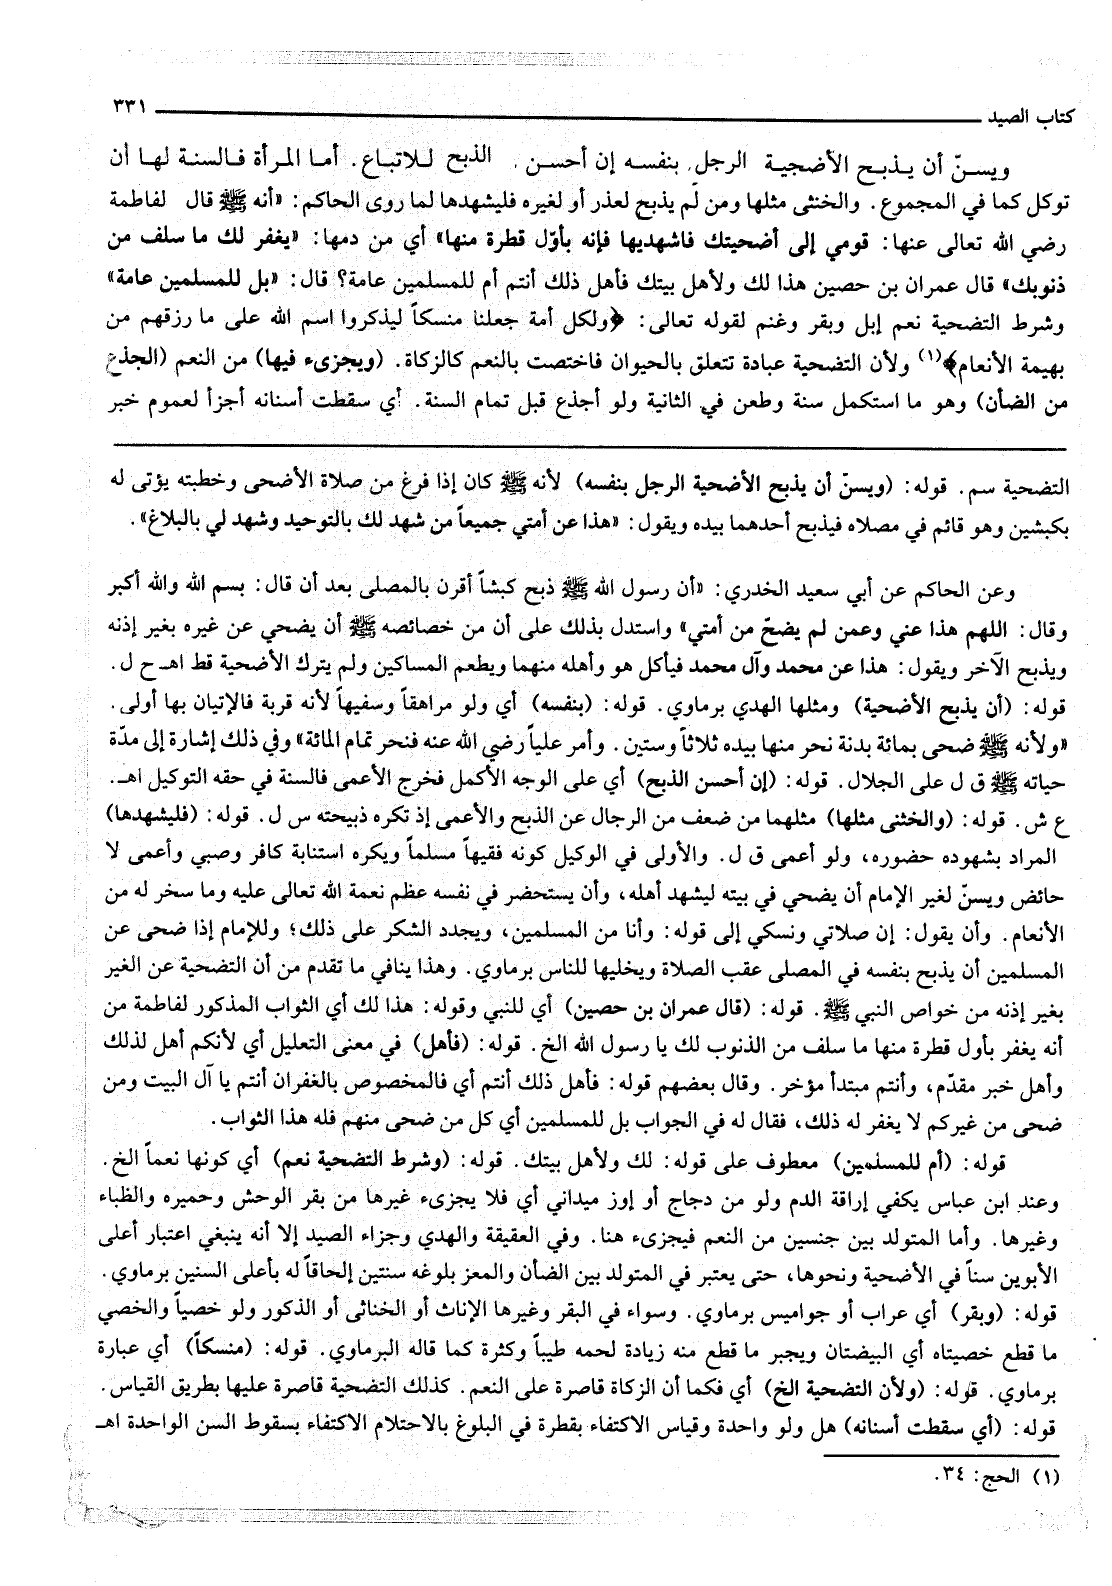 كتاب الصيد ٣٣١
ويسنّ أن يذبح الأضحية الرجل بنفسه إن أحسن الذبح للاتباع. أما المرأة فالسنة لها أن
توكل كما في المجموع. والخنثى مثلها ومن لم يذبح لعذر أو لغيره فليشهدها لما روى الحاكم: «أنه ﷺ قال لفاطمة
رضي الله تعالى عنها: قومي إلى أضحيتك فاشهديها فإنه بأوّل قطرة منها» أي من دمها: «يغفر لك ما سلف من
ذنوبك» قال عمران بن حصين هذا لك ولأهل بيتك فأهل ذلك أنتم أم للمسلمين عامة؟ قال: «بل للمسلمين عامة»
وشرط التضحية نعم إبل وبقر وغنم لقوله تعالى: ﴿ولكل أمة جعلنا منسكاً ليذكروا اسم الله على ما رزقهم من
بهيمة الأنعام﴾(١) ولأن التضحية عبادة تتعلق بالحيوان فاختصت بالنعم كالزكاة. (ويجزىء فيها) من النعم (الجذع
من الضأن) وهو ما استكمل سنة وطعن في الثانية ولو أجذع قبل تمام السنة. أي سقطت أسنانه أجزأ لعموم خبر
التضحية سم. قوله: (ويسنّ أن يذبح الأضحية الرجل بنفسه) لأنه ﷺ كان إذا فرغ من صلاة الأضحى وخطبته يؤتى له
بكبشين وهو قائم في مصلاه فيذبح أحدهما بيده ويقول: «هذا عن أمتي جميعاً من شهد لك بالتوحيد وشهد لي بالبلاغ».
وعن الحاكم عن أبي سعيد الخدري: «أن رسول الله ﷺ ذبح كبشاً أقرن بالمصلى بعد أن قال: بسم الله والله أكبر
وقال: اللهم هذا عني وعمن لم يضحّ من أمتي» واستدل بذلك على أن من خصائصه ﷺ أن يضحي عن غيره بغير إذنه
ويذبح الآخر ويقول: هذا عن محمد وآل محمد فيأكل هو وأهله منهما ويطعم المساكين ولم يترك الأضحية قط اهـ ح ل.
قوله: (أن يذبح الأضحية) ومثلها الهدي برماوي. قوله: (بنفسه) أي ولو مراهقاً وسفيهاً لأنه قربة فالإتيان بها أولى.
«ولأنه ﷺ ضحى بمائة بدنة نحر منها بيده ثلاثاً وستين. وأمر علياً رضي الله عنه فنحر تمام المائة» وفي ذلك إشارة إلى مدّة
حياته ﷺ ق ل على الجلال. قوله: (إن أحسن الذبح) أي على الوجه الأكمل فخرج الأعمى فالسنة في حقه التوكيل اهـ.
ع ش. قوله: (والخنثى مثلها) مثلهما من ضعف من الرجال عن الذبح والأعمى إذ تكره ذبيحته س ل. قوله: (فليشهدها)
المراد بشهوده حضوره، ولو أعمى ق ل. والأولى في الوكيل كونه فقيهاً مسلماً ويكره استنابة كافر وصبي وأعمى لا
حائض ويسنّ لغير الإمام أن يضحي في بيته ليشهد أهله، وأن يستحضر في نفسه عظم نعمة الله تعالى عليه وما سخر له من
الأنعام. وأن يقول: إن صلاتي ونسكي إلى قوله: وأنا من المسلمين، ويجدد الشكر على ذلك؛ وللإمام إذا ضحى عن
المسلمين أن يذبح بنفسه في المصلى عقب الصلاة ويخليها للناس برماوي. وهذا ينافي ما تقدم من أن التضحية عن الغير
بغير إذنه من خواص النبي ﷺ. قوله: (قال عمران بن حصين) أي للنبي وقوله: هذا لك أي الثواب المذكور لفاطمة من
أنه يغفر بأول قطرة منها ما سلف من الذنوب لك يا رسول الله الخ. قوله: (فأهل) في معنى التعليل أي لأنكم أهل لذلك
وأهل خبر مقدّم، وأنتم مبتدأ مؤخر. وقال بعضهم قوله: فأهل ذلك أنتم أي فالمخصوص بالغفران أنتم يا آل البيت ومن
ضحى من غيركم لا يغفر له ذلك، فقال له في الجواب بل للمسلمين أي كل من ضحى منهم فله هذا الثواب.
قوله: (أم للمسلمين) معطوف على قوله: لك ولأهل بيتك. قوله: (وشرط التضحية نعم) أي كونها نعماً الخ.
وعند ابن عباس يكفي إراقة الدم ولو من دجاج أو إوز ميداني أي فلا يجزىء غيرها من بقر الوحش وحميره والظباء
وغيرها. وأما المتولد بين جنسين من النعم فيجزىء هنا. وفي العقيقة والهدي وجزاء الصيد إلا أنه ينبغي اعتبار أعلى
الأبوين سناً في الأضحية ونحوها، حتى يعتبر في المتولد بين الضأن والمعز بلوغه سنتين إلحاقاً له بأعلى السنين برماوي.
قوله: (وبقر) أي عراب أو جواميس برماوي. وسواء في البقر وغيرها الإناث أو الخناثى أو الذكور ولو خصياً والخصي
ما قطع خصيتاه أي البيضتان ويجبر ما قطع منه زيادة لحمه طيباً وكثرة كما قاله البرماوي. قوله: (منسكاً) أي عبارة
برماوي. قوله: (ولأن التضحية الخ) أي فكما أن الزكاة قاصرة على النعم. كذلك التضحية قاصرة عليها بطريق القياس.
قوله: (أي سقطت أسنانه) هل ولو واحدة وقياس الاكتفاء بقطرة في البلوغ بالاحتلام الاكتفاء بسقوط السن الواحدة اهـ
(١) الحج: ٣٤.